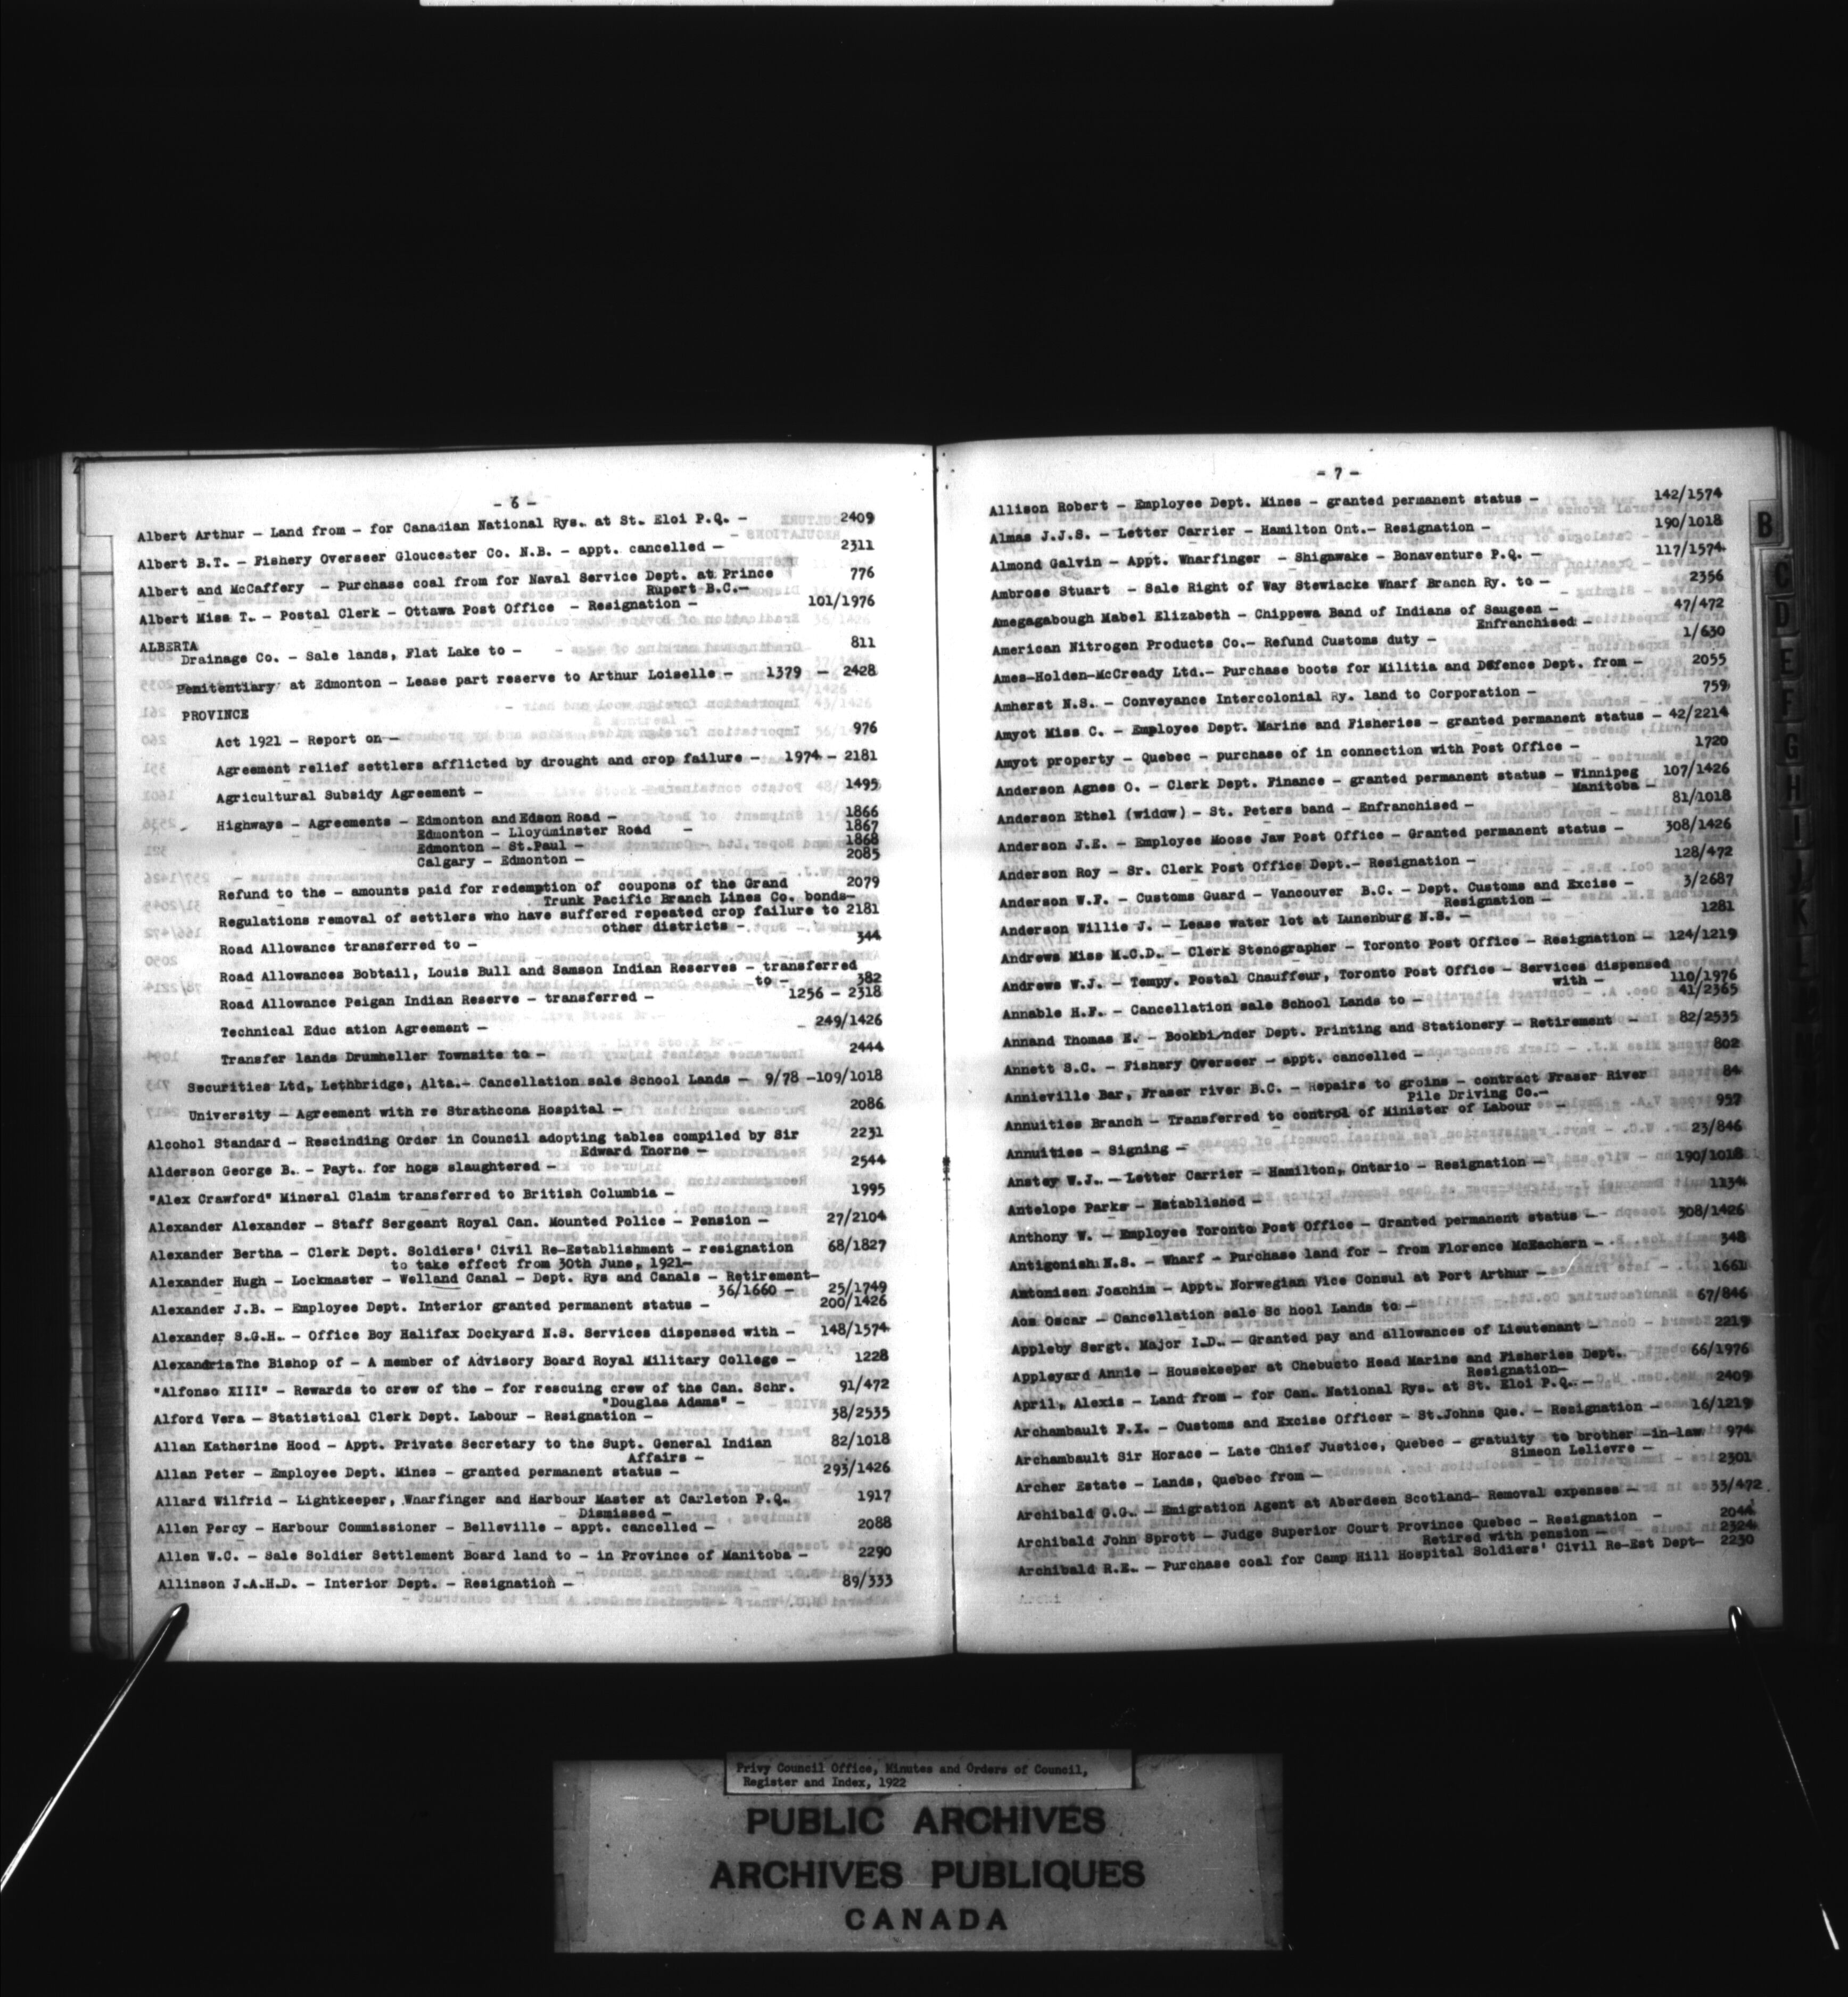 - 6 -
Albert Arthur - Land from - for Canadian National Rys. at St. Eloi P.Q. - 2409
Albert B.T. - Fishery Overseer Gloucester Co. N.B. - appt. cancelled - 2311
Albert and McCaffery - Purchase coal from for Naval Service Dept. at Prince 776
Rupert B.C.-
Albert Miss T. - Postal Clerk - Ottawa Post Office - Resignation - 101/1976
ALBERTA
Drainage Co. - Sale lands, Flat Lake to - 811
Penitentiary at Edmonton - Lease part reserve to Arthur Loiselle - 1379 - 2428
PROVINCE
Act 1921 - Report on - 976
Agreement relief settlers afflicted by drought and crop failure - 1974 - 2181
Agricultural Subsidy Agreement - 1495
Highways - Agreements - Edmonton and Edson Road - 1866
Edmonton - Lloydminster Road - 1867
Edmonton - St.Paul - 1868
Calgary - Edmonton - 2085
Refund to the - amounts paid for redemption of coupons of the Grand 2079
Trunk Pacific Branch Lines Co. bonds-
Regulations removal of settlers who have suffered repeated crop failure to 2181
other districts -
Road Allowance transferred to - 344
Road Allowances Bobtail, Louis Bull and Samson Indian Reserves - transferred
to - 382
Road Allowance Peigan Indian Reserve - transferred - 1256 - 2318
Technical Educ ation Agreement - 249/1426
Transfer lands Drumheller Townsite to - 2444
Securities Ltd, Lethbridge, Alta.- Cancellation sale School Lands - 9/78 -109/1018
University - Agreement with re Strathcona Hospital - 2086
Alcohol Standard - Rescinding Order in Council adopting tables compiled by Sir 2231
Edward Thorne -
Alderson George B. - Payt. for hogs slaughtered - 2544
"Alex Crawford" Mineral Claim transferred to British Columbia - 1995
Alexander Alexander - Staff Sergeant Royal Can. Mounted Police - Pension - 27/2104
Alexander Bertha - Clerk Dept. Soldiers' Civil Re-Establishment - resignation 68/1827
to take effect from 30th June, 1921-
Alexander Hugh - Lockmaster - Welland Canal - Dept. Rys and Canals - Retirement-
36/1660 - 25/1749
Alexander J.B. - Employee Dept. Interior granted permanent status - 200/1426
Alexander S.G.H. - Office Boy Halifax Dockyard N.S. Services dispensed with - 148/1574
Alexandria The Bishop of - A member of Advisory Board Royal Military College - 1228
"Alfonso XIII" - Rewards to crew of the - for rescuing crew of the Can. Schr. 91/472
"Douglas Adams" -
Alford Vera - Statistical Clerk Dept. Labour - Resignation - 38/2535
Allan Katherine Hood - Appt. Private Secretary to the Supt. General Indian 82/1018
Affairs -
Allan Peter - Employee Dept. Mines - granted permanent status - 293/1426
Allard Wilfrid - Lightkeeper, Wharfinger and Harbour Master at Carleton P.Q. 1917
Dismissed -
Allen Percy - Harbour Commissioner - Belleville - appt. cancelled - 2088
Allen W.C. - Sale Soldier Settlement Board land to - in Province of Manitoba - 2290
Allinson J.A.H.D. - Interior Dept. - Resignation - 89/333
- 7 -
Allison Robert - Employee Dept. Mines - granted permanent status - 142/1574
Almas J.J.S. - Letter Carrier - Hamilton Ont.- Resignation - 190/1018
Almond Galvin - Appt. Wharfinger - Shigawake - Bonaventure P.Q. - 117/1574
Ambrose Stuart - Sale Right of Way Stewiacke Wharf Branch Ry. to - 2356
Amegagabough Mabel Elizabeth - Chippewa Band of Indians of Saugeen - 47/472
Enfranchised -
American Nitrogen Products Co.- Refund Customs duty - 1/630
Ames-Holden-McCready Ltd.- Purchase boots for Militia and Defence Dept. from - 2055
Amherst N.S. - Conveyance Intercolonial Ry. land to Corporation - 759
Amyot Miss C. - Employee Dept. Marine and Fisheries - granted permanent status - 42/2214
Amyot property - Quebec - purchase of in connection with Post Office - 1720
Anderson Agnes O. - Clerk Dept. Finance - granted permanent status - Winnipeg 107/1426
Manitoba -
Anderson Ethel (widow) - St. Peters band - Enfranchised - 81/1018
Anderson J.E. - Employee Moose Jaw Post Office - Granted permanent status - 308/1426
Anderson Roy - Sr. Clerk Post Office Dept.- Resignation - 128/472
Anderson W.F. - Customs Guard - Vancouver B.C. - Dept. Customs and Excise - 3/2687
Resignation -
Anderson Willie J. - Lease water lot at Lunenburg N.S. - 1281
Andrews Miss M.C.D. - Clerk Stenographer - Toronto Post Office - Resignation - 124/1219
Andrews W.J. - Tempy. Postal Chauffeur, Toronto Post Office - Services dispensed
with - 110/1976
Annable H.F. - Cancellation sale School Lands to - 41/2365
Annand Thomas E. - Bookbinder Dept. Printing and Stationery - Retirement - 82/2535
Annett S.C. - Fishery Overseer - appt. cancelled - 802
Annieville Bar, Fraser river B.C. - Repairs to groins - contract Fraser River 84
Pile Driving Co.-
Annuities Branch - Transferred to control of Minister of Labour - 957
Annuities - Signing - 23/846
Anstey W.J. - Letter Carrier - Hamilton, Ontario - Resignation - 190/1018
Antelope Parks - Established - 1134
Anthony W. - Employee Toronto Post Office - Granted permanent status - 308/1426
Antigonish N.S. - Wharf - Purchase land for - from Florence McEachern - 348
Antomisen Joachim - Appt. Norwegian Vice Consul at Port Arthur - 1661
Aos Oscar - Cancellation sale Sc hool Lands to - 67/846
Appleby Sergt. Major I.D. - Granted pay and allowances of Lieutenant - 2219
Appleyard Annie - Housekeeper at Chebucto Head Marine and Fisheries Dept. 66/1976
Resignation-
April, Alexis - Land from - for Can. National Rys. at St. Eloi P.Q. - 2409
Archambault F.X. - Customs and Excise Officer - St.Johns Que. - Resignation - 16/1219
Archambault Sir Horace - Late Chief Justice, Quebec - gratuity to brother -in-law 974
Simeon Lelievre -
Archer Estate - Lands, Quebec from - 2301
Archibald G.G. - Emigration Agent at Aberdeen Scotland- Removal expenses - 33/472
Archibald John Sprott - Judge Superior Court Province Quebec - Resignation - 2044
Retired with pension - 2324
Archibald R.E. - Purchase coal for Camp Hill Hospital Soldiers' Civil Re-Est Dept- 2230
B
C
D
E
F
G
H
I
J
K
Privy Council Office, Minutes and Orders of Council,
Register and Index, 1922
PUBLIC ARCHIVES
ARCHIVES PUBLIQUES
CANADA